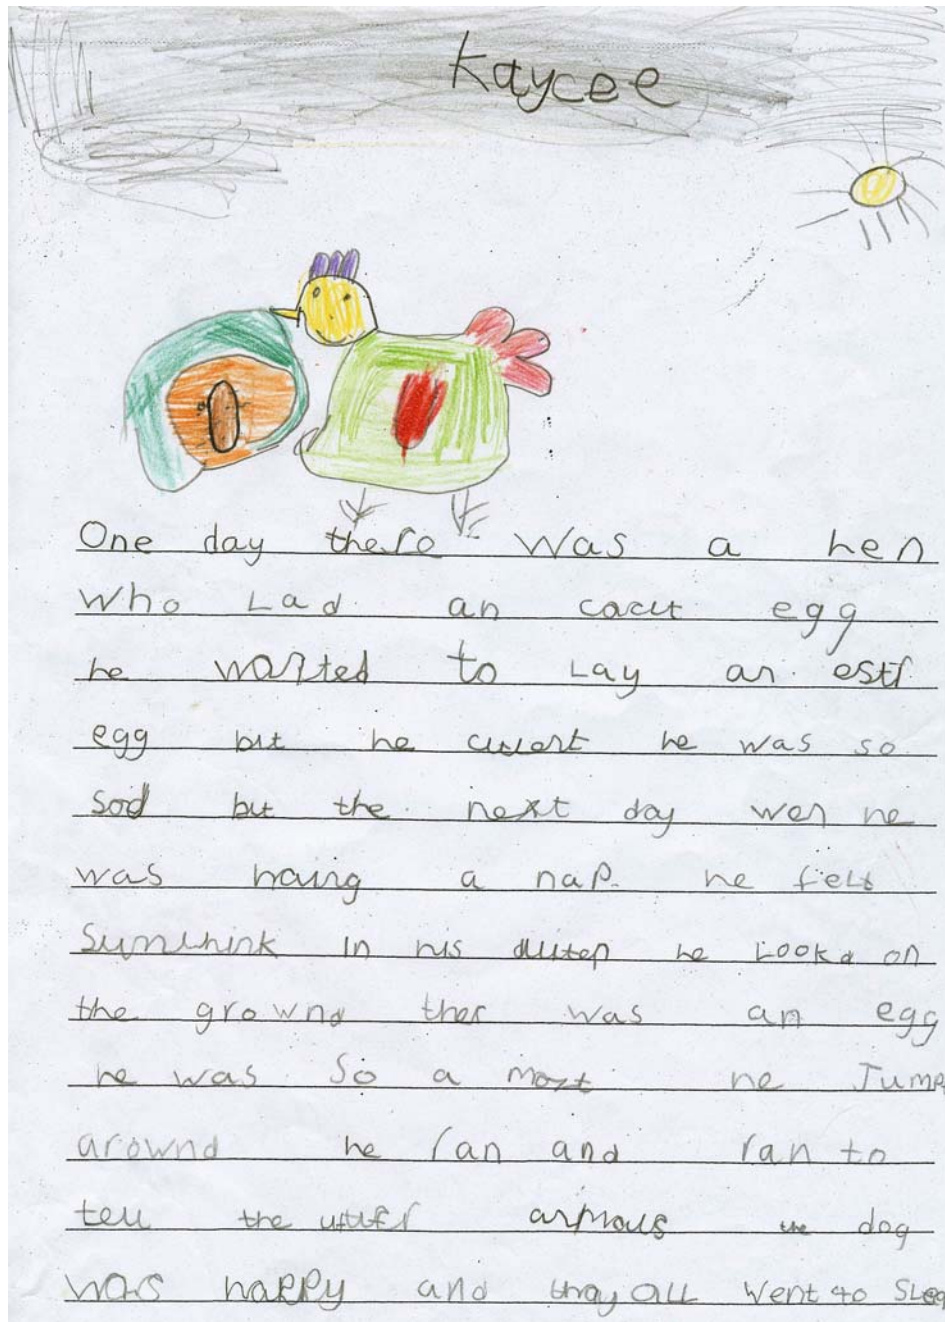 Kaycee
One day there was a hen
who Lad an egg
he wanted to Lay an estr
egg but he he was so
sad but the next day wen he
was haing a nap. he felt
in his he Lookd on
the grownd ther was an egg
he was So a he Jump
arownd he ran and ran to
tell the the dog
was happy and thay all went to Sleep